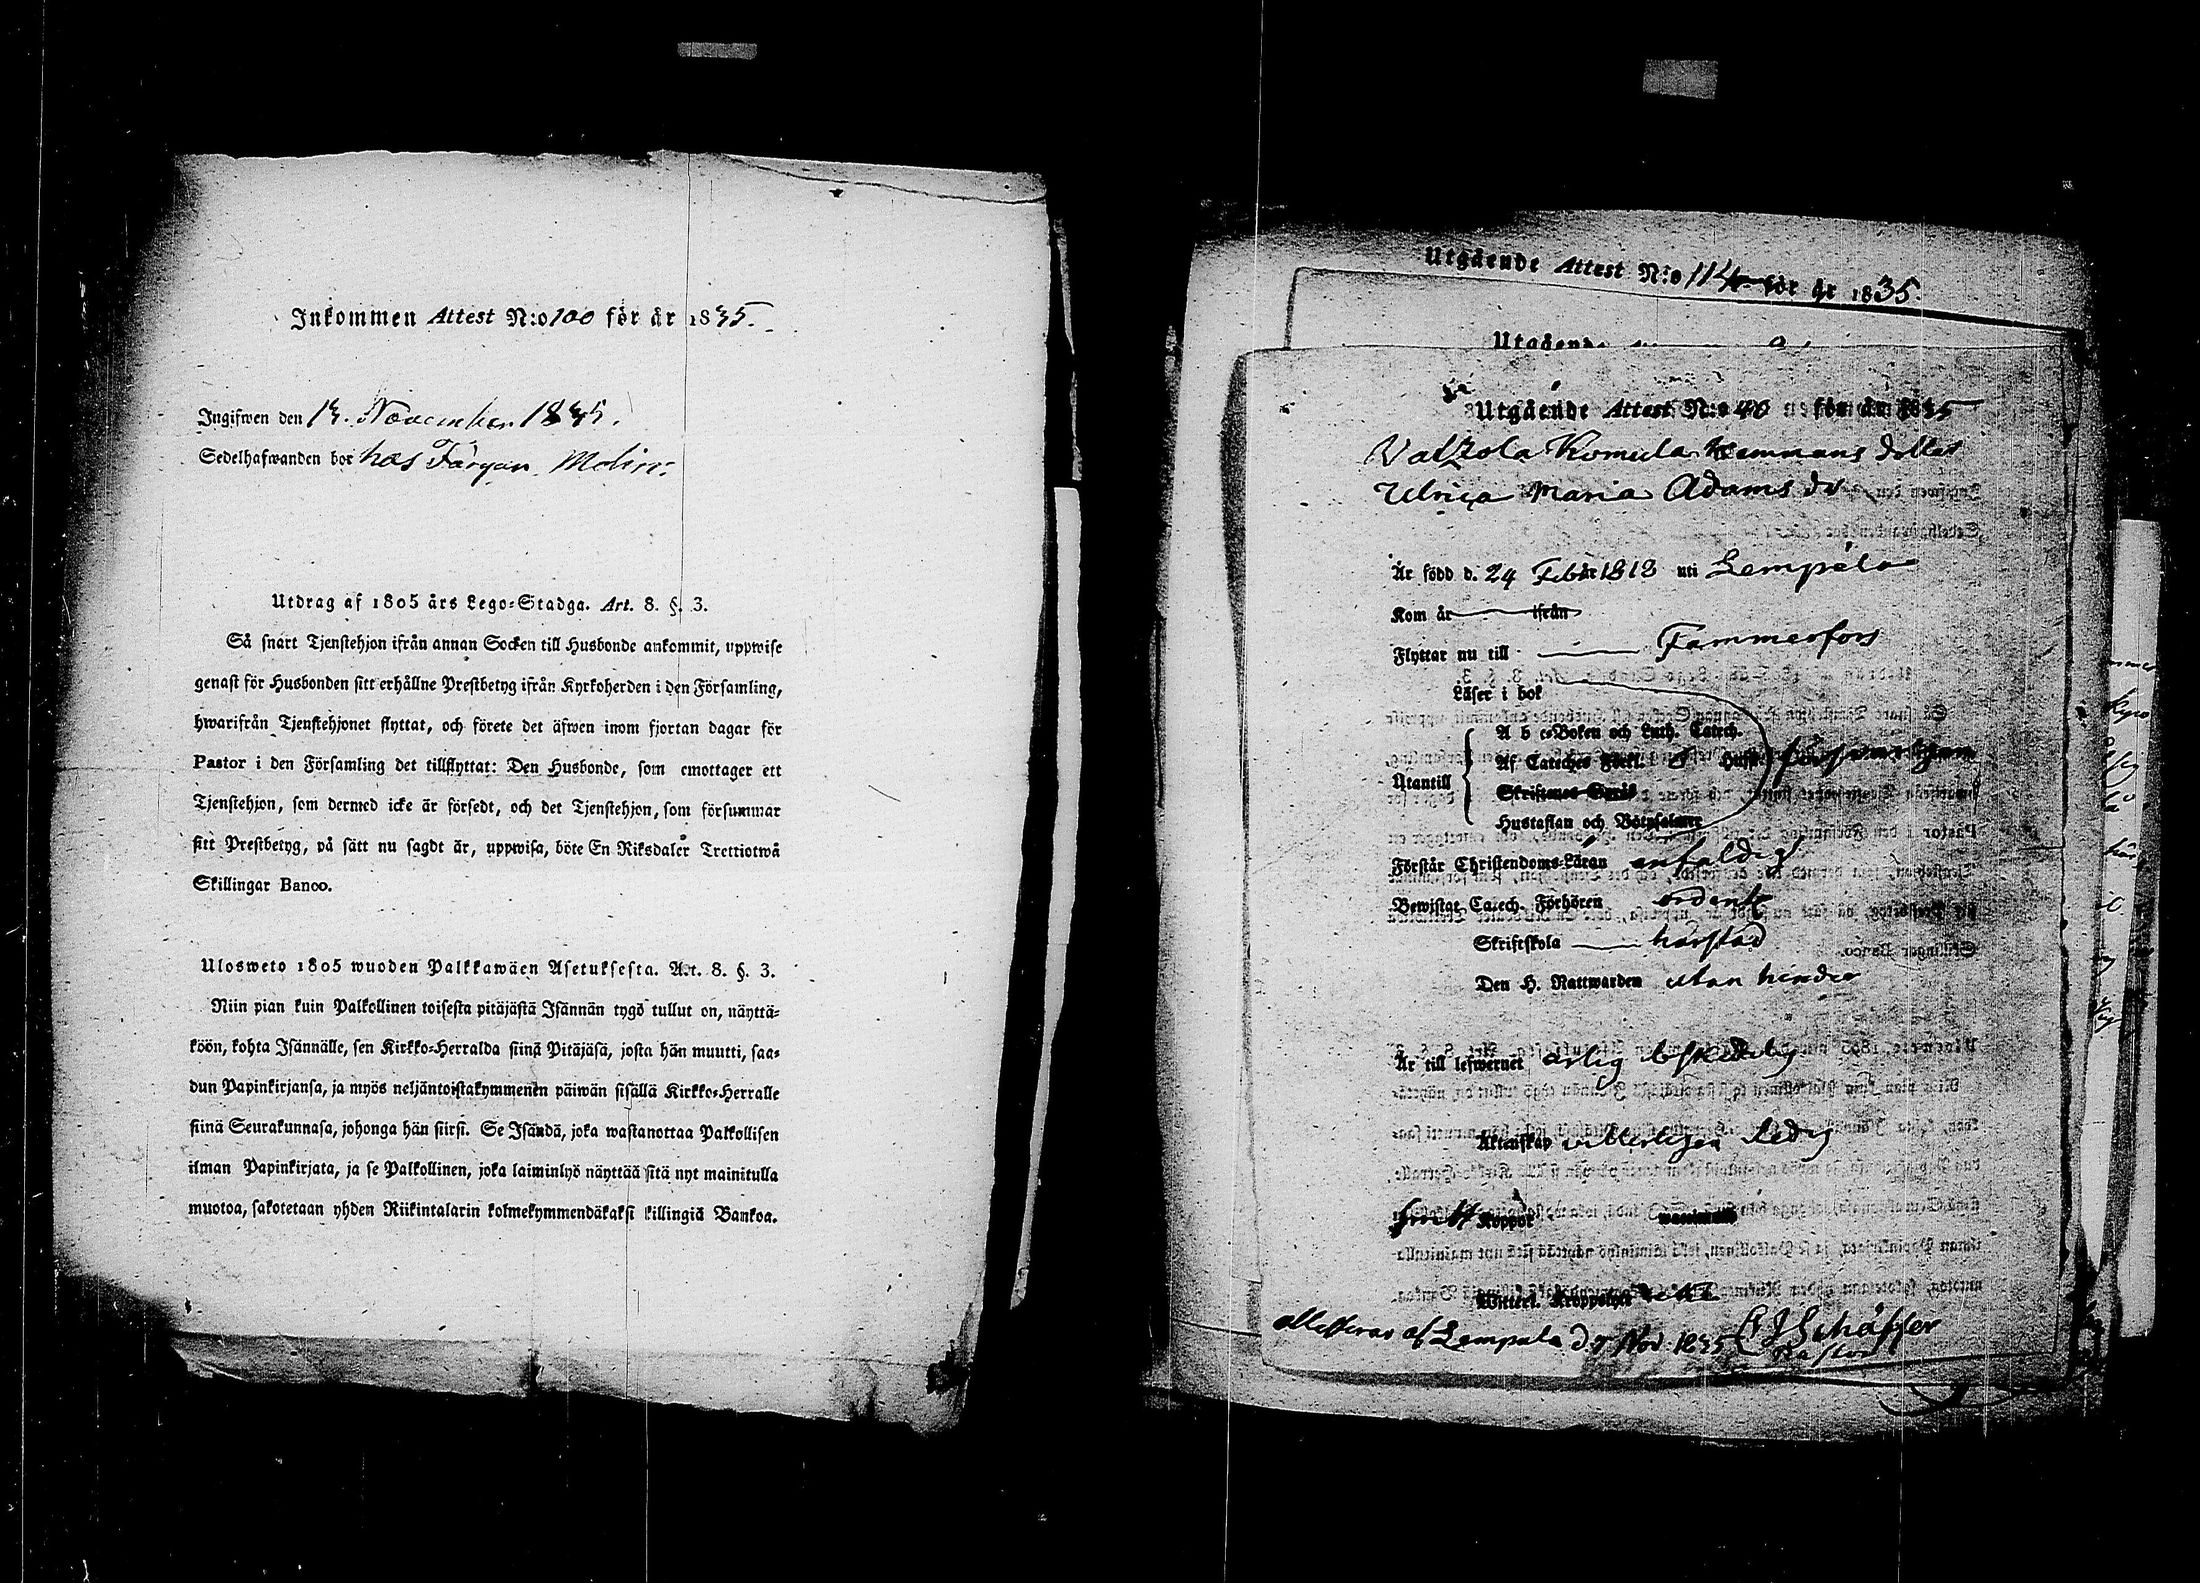 Inkommen Attest N:o 100 för år 1835.
Ingifwen den 13. November 1835.
Sedelhafwanden bor hos Färgar. Molin.
Utdrag af 1805 års Lego-Stadga. Art. 8. §. 3.
Så snart Tjenstehjon ifrån annan Socken till Husbonde ankommit, uppwise
genast för Husbonden sitt erhållne Prestbetyg ifrån Kyrkoherden i den Församling,
hwarifrån Tjenstehjonet flyttat, och förete det äfwen inom fjortan dagar för
Pastor i den Församling det tillflyttat: Den Husbonde, som emottager ett
Tjenstehjon, som dermed icke är försedt, och det Tjenstehjon, som försummar
sitt Prestbetyg, på sätt nu sagdt är, uppwisa, böte En Riksdaler Trettiotwå
Skillingar Banco.
Ulosweto 1805 wuoden Palkkawäen Asetuksesta. Art. 8. §. 3.
Niin pian kuin Palkollinen toisesta pitäjästä Isännän tygö tullut on, näyttä-
köön, kohta Isännälle, sen Kirkko-Herralda siinä Pitäjäsä, josta hän muutti, saa-
dun Papinkirjansa, ja myös neljäntoistakymmenen päiwän sisällä Kirkko-Herralle
siinä Seurakunnasa, johonga hän siirsi. Se Isändä, joka wastanottaa Palkollisen
ilman Papinkirjata, ja se Palkollinen, joka laiminlyö näyttää sitä nyt mainitulla
muotoa, sakotetaan yhden Riikintalarin kolmekymmendäkaksi killingiä Bankoa.
Utgående Attest N:o 114 för år 1835.
Utgående
Utgående Attest N:o 40 för år 1835
Komula Hemmans dotter
Ulrica Maria Adams dr
Är född d. 24 Febr 1818 uti Lempäla
Kom år ifrån
Flyttar nu till Tammerfors
Läser i bok
A b c-Boken och Luth. Catech.
Utantill Af Cateches Förkl. Husf. försvarligen
Skriftenes Språk
Hustaflan och Botpsalmer
Förstår Christendoms-Läran enfaldigt
Bewistat Catech. Förhören ordentl.
Skriftskola härstad
Den H. Nattwarden utan hinder
Är till lefwernet ärlig beskedelig
Äktenskap witterligen ledig
Koppor
Witterl. Kroppslyte
attesteras af Lempala d 7 Nov. 1835 Schäffer
Pastor